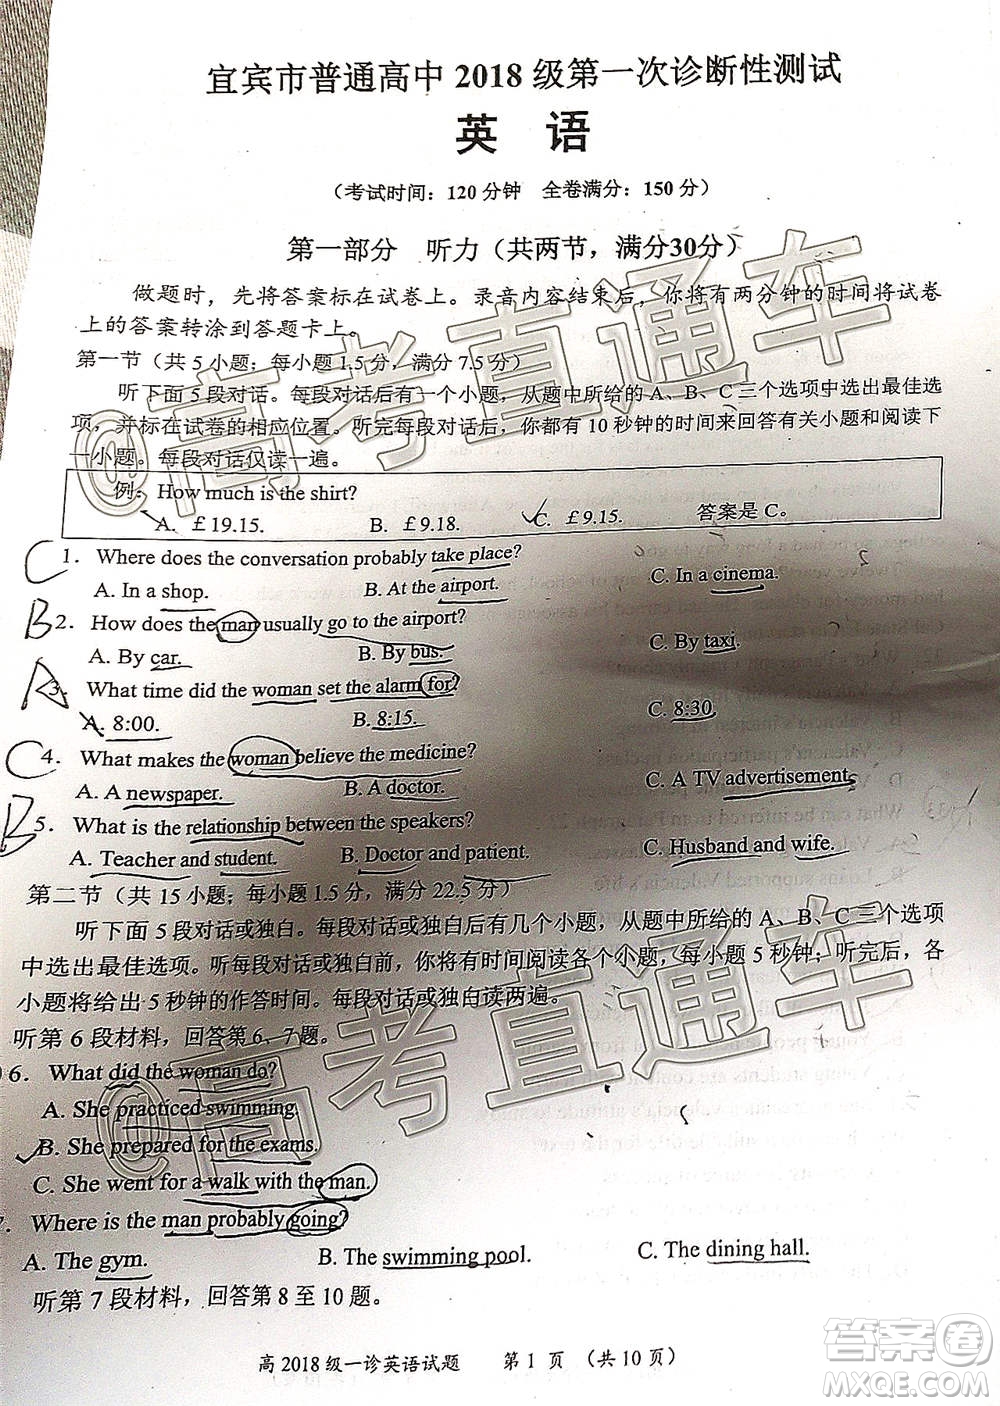 宜宾市普通高中 2018 级第一次诊断性测试
英 语
（考试时间：120 分钟 全卷满分：150 分）
第一部分 听力（共两节，满分30分）
做题时，先将答案标在试卷上。录音内容结束后，你将有两分钟的时间将试卷
上的答案转涂到答题卡上。
第一节（共 5 小题；每小题 1.5 分，满分 7.5 分）
听下面 5 段对话。每段对话后有一个小题，从题中所给的 A、B、C 三个选项中选出最佳选
项，并标在试卷的相应位置。听完每段对话后，你都有 10 秒钟的时间来回答有关小题和阅读下
一小题。每段对话仅读一遍。
例：How much is the shirt?
A. £19.15. B. £9.18. C. £9.15. 答案是 C。
C 1. Where does the conversation probably take place?
A. In a shop. B. At the airport. C. In a cinema.
B 2. How does the man usually go to the airport?
A. By car. B. By bus. C. By taxi.
A 3. What time did the woman set the alarm for?
A. 8:00. B. 8:15. C. 8:30.
C 4. What makes the woman believe the medicine?
A. A newspaper. B. A doctor. C. A TV advertisement.
B 5. What is the relationship between the speakers?
A. Teacher and student. B. Doctor and patient. C. Husband and wife.
第二节（共 15 小题；每小题 1.5 分，满分 22.5 分）
听下面 5 段对话或独白。每段对话或独白后有几个小题，从题中所给的 A、B、C 三个选项
中选出最佳选项。听每段对话或独白前，你将有时间阅读各个小题，每小题 5 秒钟；听完后，各
小题将给出 5 秒钟的作答时间。每段对话或独白读两遍。
听第 6 段材料，回答第 6、7 题。
6. What did the woman do?
A. She practiced swimming.
B. She prepared for the exams.
C. She went for a walk with the man.
7. Where is the man probably going?
A. The gym. B. The swimming pool. C. The dining hall.
听第 7 段材料，回答第 8 至 10 题。
高 2018 级一诊英语试题 第 1 页 （共 10 页）
@高考直通车
@高考直通车
答案圈
MXQE.COM